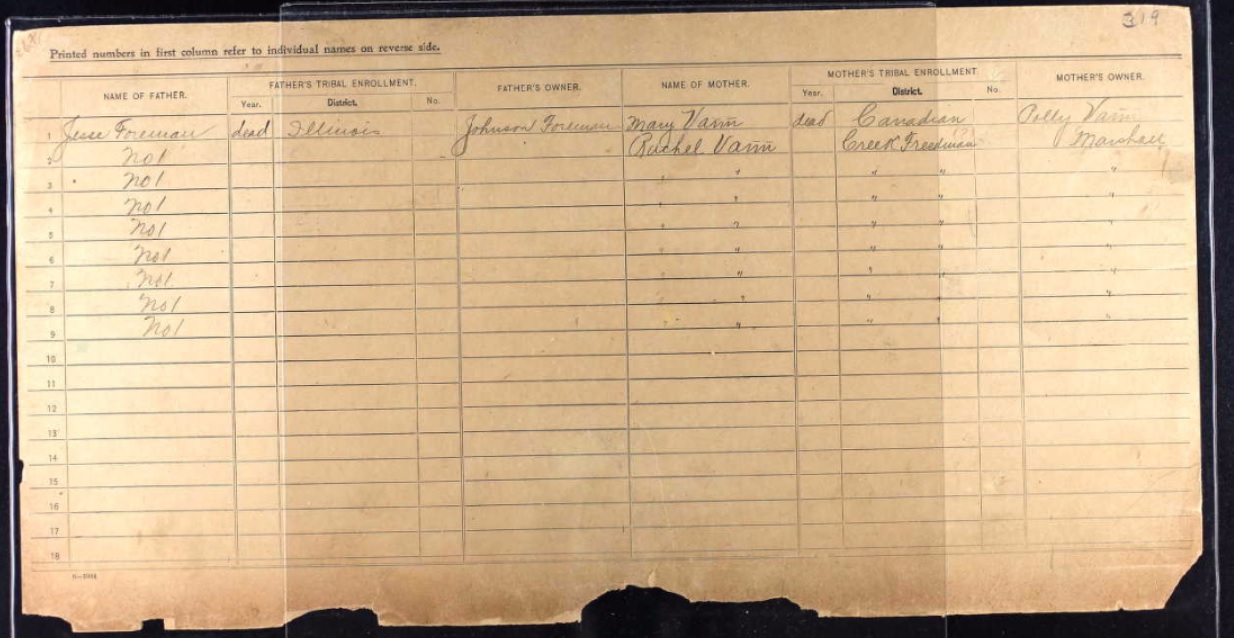 319
Printed numbers in first column refer to individual names on reverse side.
NAME OF FATHER. FATHER'S TRIBAL ENROLLMENT. FATHER'S OWNER. NAME OF MOTHER. MOTHER'S TRIBAL ENROLLMENT. MOTHER'S OWNER.
Year. District. No. Year. District. No.
1 Jesse Foreman dead Illinois Johnson Foreman Mary Vann dead Canadian Polly Vann
2 No1 Rachel Vann Creek Freedman (?) Marshall
3 No1 " " " " "
4 No1 " " " " "
5 No1 " " " " "
6 No1 " " " " "
7 No1 " " " " "
8 No1 " " " " "
9 No1 " " " " "
10
11
12
13
14
15
16
17
18